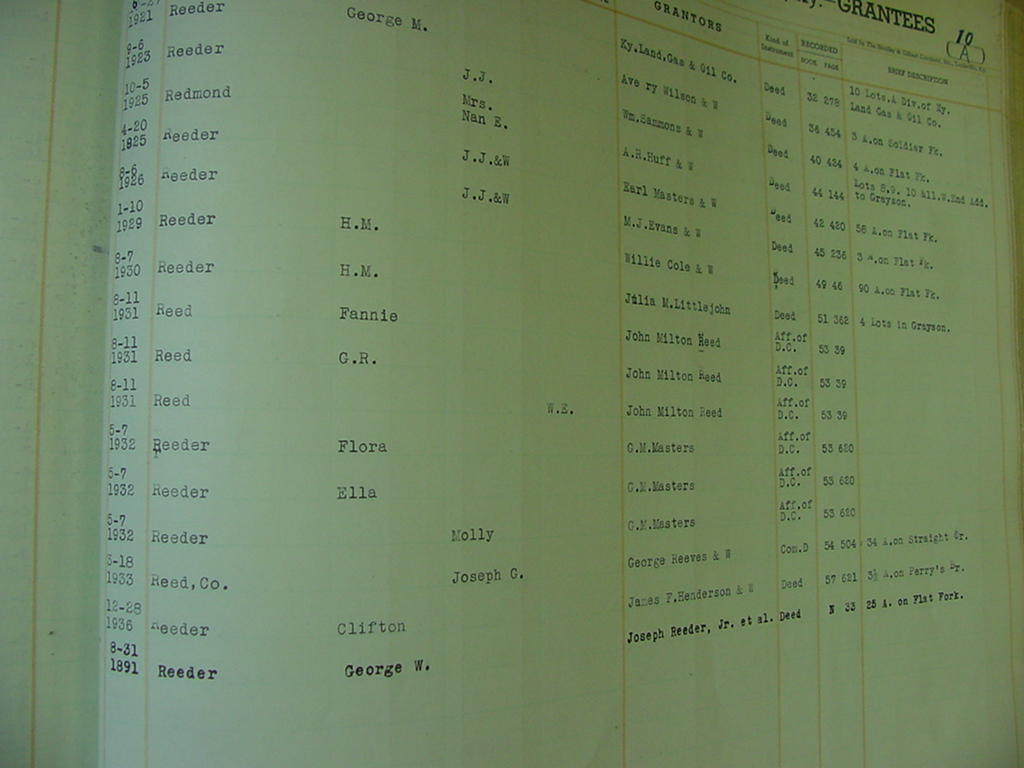 GRANTEES 10 (A)
GRANTORS Kind of Instrument RECORDED BOOK PAGE BRIEF DESCRIPTION
Ky.Land.Gas & Oil Co. Deed 32 278 10 Lots.A Div.of Ky.
Land Gas & Oil Co.
1921 Reeder George M. Ave ry Wilson & W Deed 36 454 3 A.on Soldier Fk.
9-6
1923 Reeder J.J. Wm.Sammons & W Deed 40 424 4 A.on Flat Fk.
10-5 Mrs.
1925 Redmond Nan E. A.R.Huff & W Deed 44 144 Lots 8.9. 10 &11.W.End Add.
to Grayson.
4-20
1925 Reeder J.J.&W Earl Masters & W Deed 42 420 58 A.on Flat Fk.
8-6
1926 Reeder J.J.&W M.J.Evans & W Deed 45 236 3 A.on Flat Fk.
1-10
1929 Reeder H.M. Willie Cole & W Deed 49 46 90 A.on Flat Fk.
8-7
1930 Reeder H.M. Julia M.Littlejohn Deed 51 362 4 Lots in Grayson.
8-11 Aff.of
1931 Reed Fannie John Milton Reed D.C. 53 39
8-11 Aff.of
1931 Reed G.R. John Milton Reed D.C. 53 39
8-11 Aff.of
1931 Reed W.E. John Milton Reed D.C. 53 39
5-7 Aff.of
1932 Reeder Flora G.M.Masters D.C. 53 620
5-7 Aff.of
1932 Reeder Ella G.M.Masters D.C. 53 620
5-7 Aff.of
1932 Reeder Molly G.M.Masters D.C. 53 620
3-18
1933 Reed,Co. Joseph G. George Reeves & W Com.D 54 504 34 A.on Straight Cr.
12-28
1936 Reeder Clifton James F.Henderson & W Deed 57 621 3½ A.on Perry's Br.
8-31
1891 Reeder George W. Joseph Reeder, Jr. et al. Deed N 33 25 A. on Flat Fork.